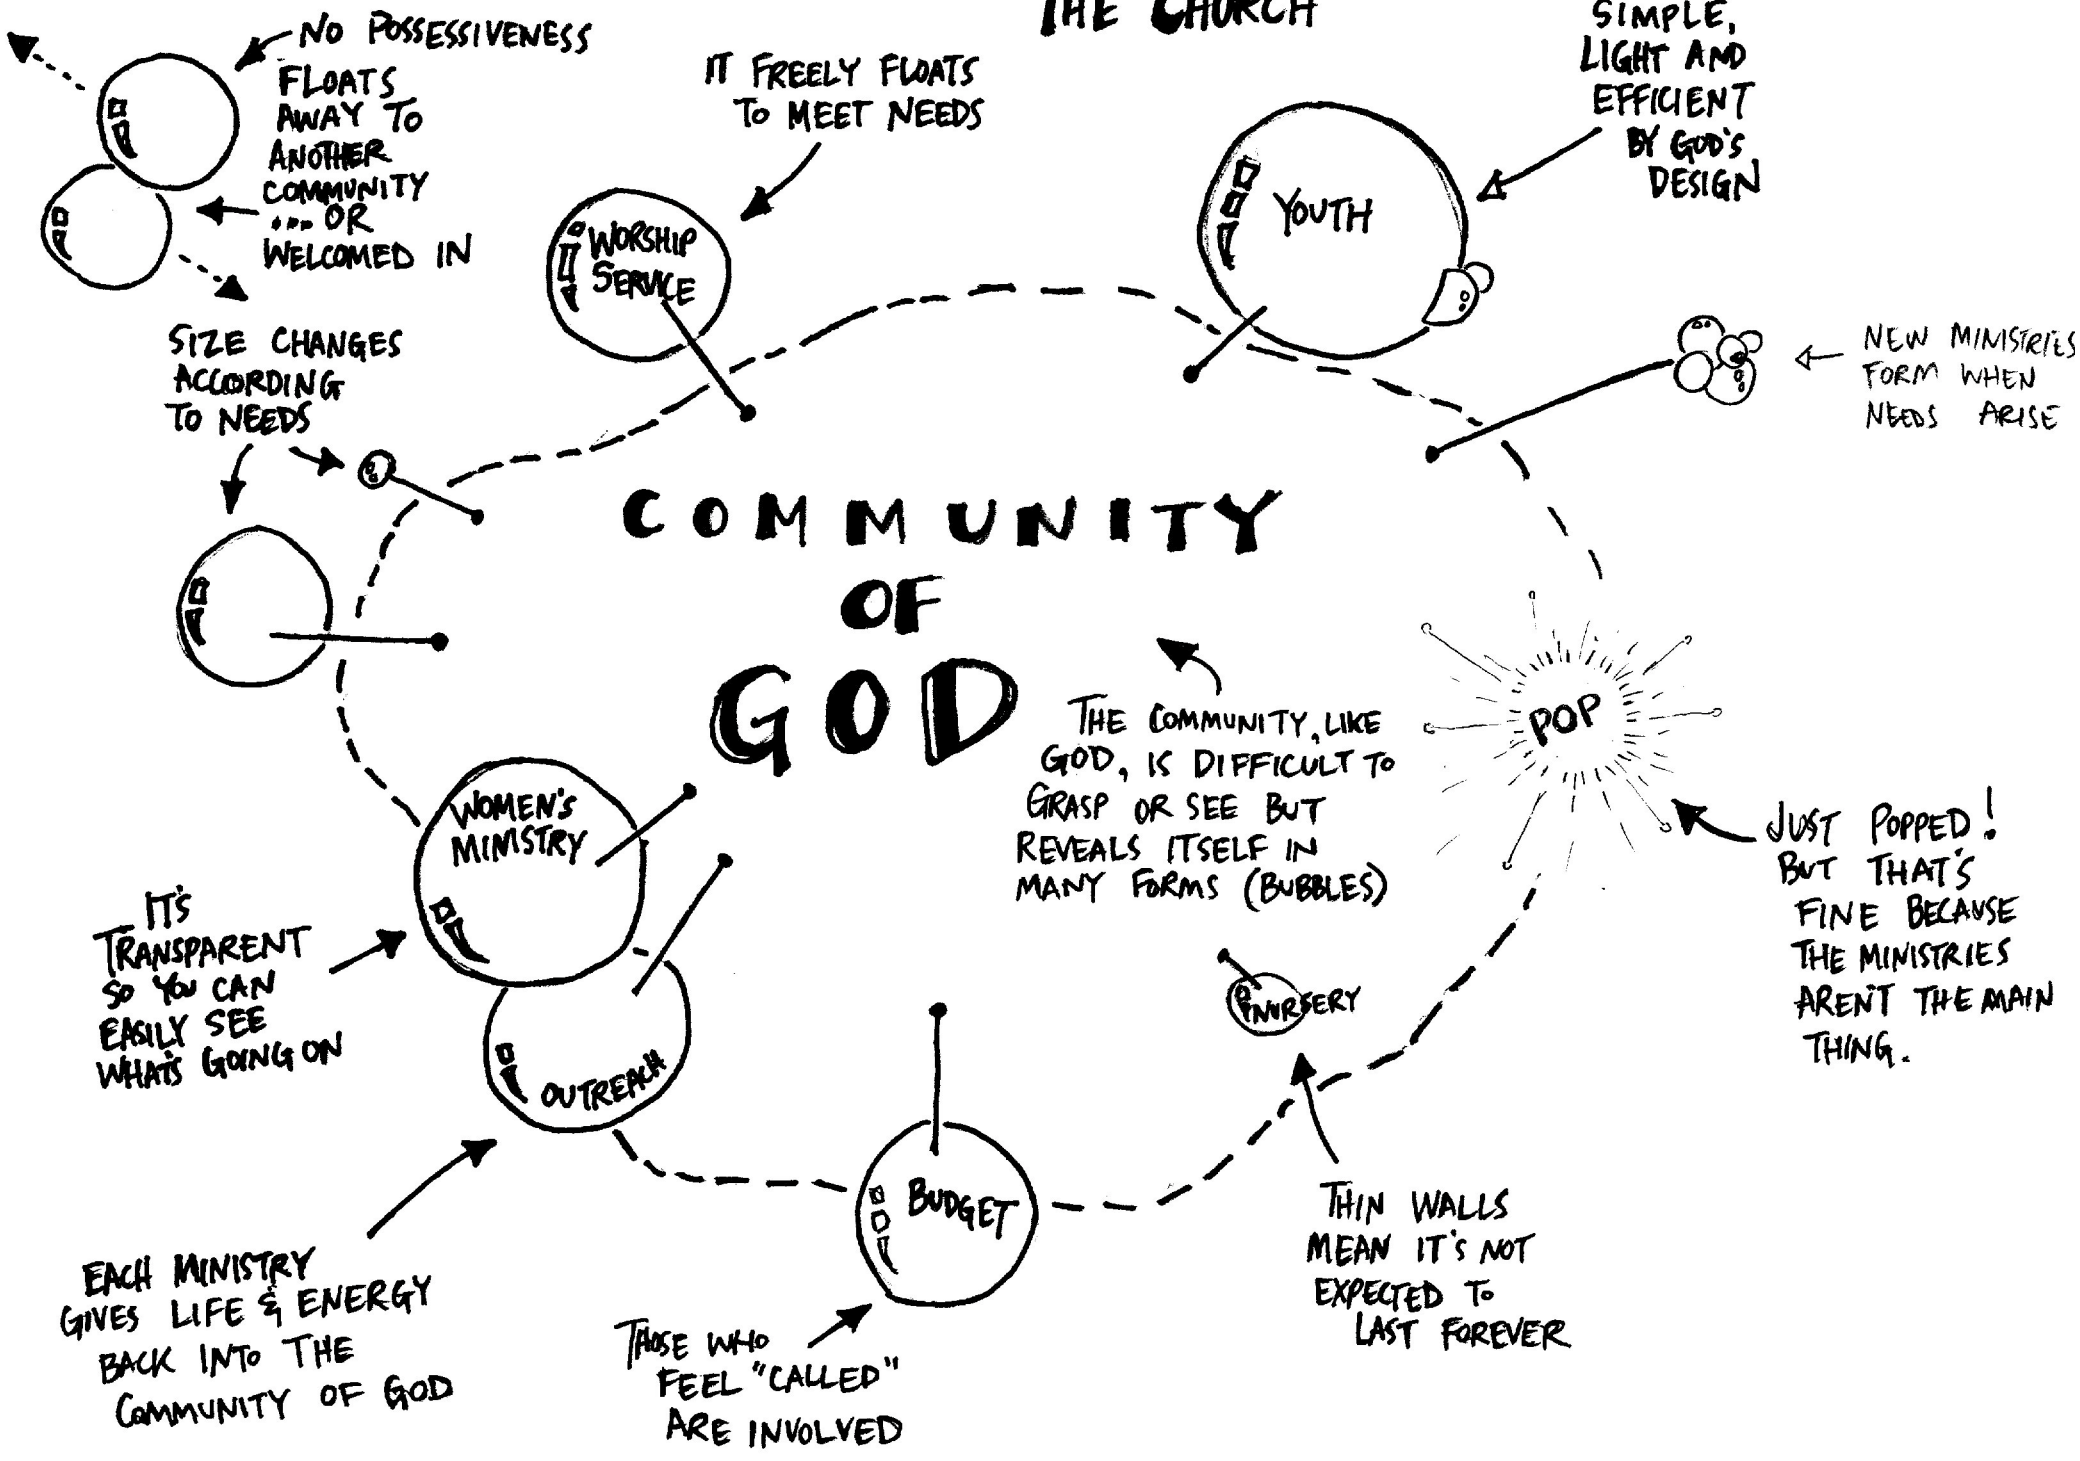 THE CHURCH
NO POSSESSIVENESS
FLOATS
AWAY TO
ANOTHER
COMMUNITY
... OR
WELCOMED IN
IT FREELY FLOATS
TO MEET NEEDS
SIMPLE,
LIGHT AND
EFFICIENT
BY GOD'S
DESIGN
WORSHIP
SERVICE
YOUTH
SIZE CHANGES
ACCORDING
TO NEEDS
NEW MINISTRIES
FORM WHEN
NEEDS ARISE
COMMUNITY
OF
GOD
THE COMMUNITY, LIKE
GOD, IS DIFFICULT TO
GRASP OR SEE BUT
REVEALS ITSELF IN
MANY FORMS (BUBBLES)
POP
JUST POPPED!
BUT THAT'S
FINE BECAUSE
THE MINISTRIES
AREN'T THE MAIN
THING.
WOMEN'S
MINISTRY
IT'S
TRANSPARENT
SO YOU CAN
EASILY SEE
WHAT'S GOING ON
OUTREACH
NURSERY
BUDGET
THIN WALLS
MEAN IT'S NOT
EXPECTED TO
LAST FOREVER
EACH MINISTRY
GIVES LIFE & ENERGY
BACK INTO THE
COMMUNITY OF GOD
THOSE WHO
FEEL "CALLED"
ARE INVOLVED